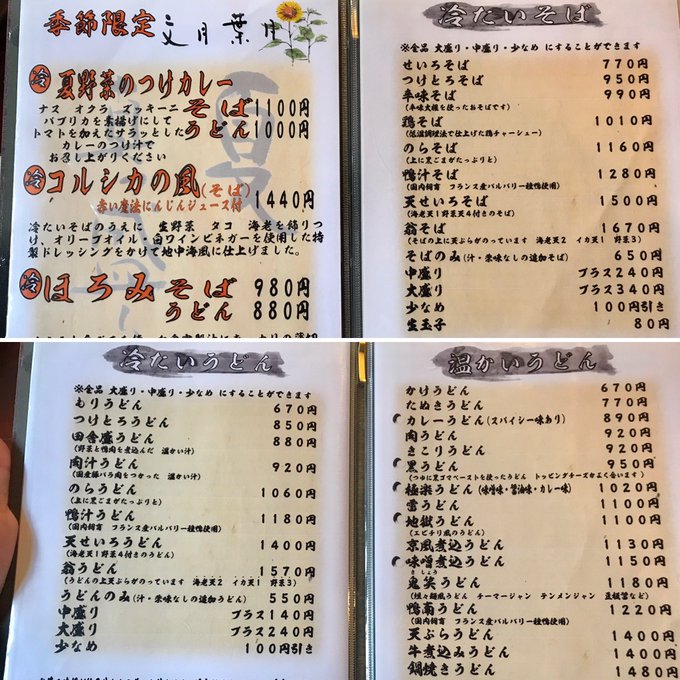 季節限定 文月 葉月
冷 夏野菜のつけカレー
ナス オクラ ズッキーニ
パプリカを素揚げにして
トマトを加えたサラッとした
カレーのつけ汁で
お召し上がりください
そば1100円
うどん1000円
冷 コルシカの風(そば)
赤い魔法にんじんジュース付 1440円
冷たいそばのうえに 生野菜 タコ 海老を飾りつ
け、オリーブオイル・白ワインビネガーを使用した特
製ドレッシングをかけて地中海風に仕上げました。
冷 ほろみそば 980円
うどん 880円
冷たいそば
※全品 大盛り・中盛り・少なめ にすることができます
せいろそば 770円
つけとろそば 950円
辛味そば 990円
(辛味大根を使ったおそばです)
鶏そば 1010円
(低温調理法で仕上げた鶏チャーシュー)
のらそば 1160円
(上に黒ごまがたっぷりと)
鴨汁そば 1280円
(国内飼育 フランス産バルバリー種鴨使用)
天せいろそば 1500円
(海老天1野菜天4付きのそば)
翁そば 1670円
(そばの上に天ぷらがのっています 海老天2 イカ天1 野菜3)
そばのみ(汁・薬味なしの追加そば) 650円
中盛り プラス240円
大盛り プラス340円
少なめ 100円引き
生玉子 80円
冷たいうどん
※全品 大盛り・中盛り・少なめ にすることができます
もりうどん 670円
つけとろうどん 850円
田舎盛うどん 880円
(野菜と鴨肉を煮込んだ 温かい汁)
肉汁うどん 920円
(国産豚バラ肉をつかった 温かい汁)
のらうどん 1060円
(上に黒ごまがたっぷりと)
鴨汁うどん 1180円
(国内飼育 フランス産バルバリー種鴨使用)
天せいろうどん 1400円
(海老天1野菜天4付きのうどん)
翁うどん 1570円
(うどんの上天ぷらがのっています 海老天2 イカ天1 野菜3)
うどんのみ(汁・薬味なしの追加うどん) 550円
中盛り プラス140円
大盛り プラス240円
少なめ 100円引き
温かいうどん
かけうどん 670円
たぬきうどん 770円
カレーうどん(スパイシー味あり) 890円
肉うどん 920円
きこりうどん 920円
黒うどん 950円
(つゆに黒ゴマペーストを使ったうどん トッピングチーズがよく合います)
極楽うどん(味噌味・醤油味・カレー味) 1020円
雷うどん 1100円
地獄うどん 1100円
(エビチリ風のうどん)
京風煮込うどん 1130円
味噌煮込うどん 1150円
きしょう
鬼笑うどん 1180円
(坦々麺風うどん チーマージャン テンメンジャン 豆板醤など)
鴨南うどん 1220円
(国内飼育 フランス産バルバリー種鴨使用)
天ぷらうどん 1400円
牛煮込みうどん 1400円
鍋焼きうどん 1480円